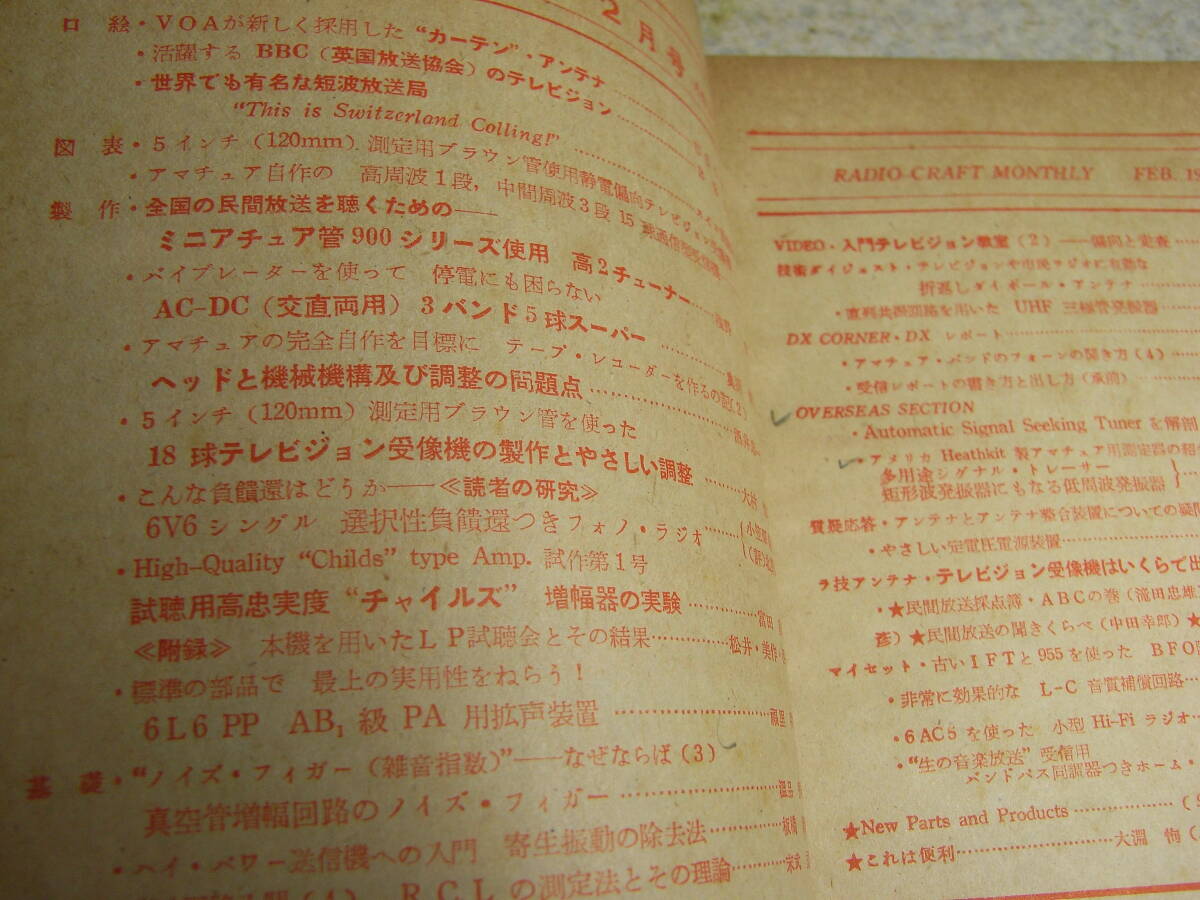 2月号
口絵・VOAが新しく採用した “カーテン”・アンテナ
・活躍する BBC (英国放送協会) のテレビジョン
・世界でも有名な短波放送局
“This is Switzerland Colling!”
図表・5インチ (120mm). 測定用ブラウン管使用静電偏向テレビジョン
・アマチュア自作の 高周波1段, 中間周波3段 15球
製作・全国の民間放送を聴くための——
ミニアチュア管900シリーズ使用 高2チューナー
・バイブレーターを使って 停電にも困らない
AC-DC (交直両用) 3バンド5球スーパー
・アマチュアの完全自作を目標に テープ・レコーダーを作るの記(2)
ヘッドと機械機構及び調整の問題点
・5インチ (120mm) 測定用ブラウン管を使った
18球テレビジョン受像機の製作とやさしい調整
・こんな負饋還はどうか——≪読者の研究≫
6V6シングル 選択性負饋還つきフォノ・ラジオ
・High-Quality “Childs” type Amp. 試作第1号
試聴用高忠実度 “チャイルズ” 増幅器の実験
≪附録≫ 本機を用いたLP試聴会とその結果 松井・美作
・標準の部品で 最上の実用性をねらう!
6L6 PP AB₁級 PA用拡声装置
基礎・“ノイズ・フィガー (雑音指数)”——なぜならば (3)
真空管増幅回路のノイズ・フィガー
・ハイ・パワー送信機への入門 寄生振動の除去法
(4) R.C.Lの測定法とその理論
RADIO-CRAFT MONTHLY FEB. 19
VIDEO・入門テレビジョン教室 (2) ——偏向と走査
技術ダイジェスト・テレビジョンや市民ラジオに有効な
折返しダイポール・アンテナ
・直列共振回路を用いた UHF 三極管発振器
DX CORNER・DX レポート
・アマチュア・バンドのフォーンの聞き方 (4)
・受信レポートの書き方と出し方 (承前)
OVERSEAS SECTION
・Automatic Signal Seeking Tuner を解剖
・アメリカ Heathkit 製アマチュア用測定器の紹
多用途シグナル・トレーサー
矩形波発振器にもなる低周波発振器
質疑応答・アンテナとアンテナ整合装置についての疑問
・やさしい定電圧電源装置
ラ技アンテナ・テレビジョン受像機はいくらで出
・★民間放送採点簿・ABCの巻 (滝田忠雄
彦) ★民間放送の聞きくらべ (中田幸郎) ★
マイセット・古いIFTと955を使った BFO
・非常に効果的な L-C 音質補償回路
・6AC5を使った 小型Hi-Fiラジオ
・“生の音楽放送” 受信用
バンドパス同調器つきホーム・
★New Parts and Products
★これは便利 大淵 恂